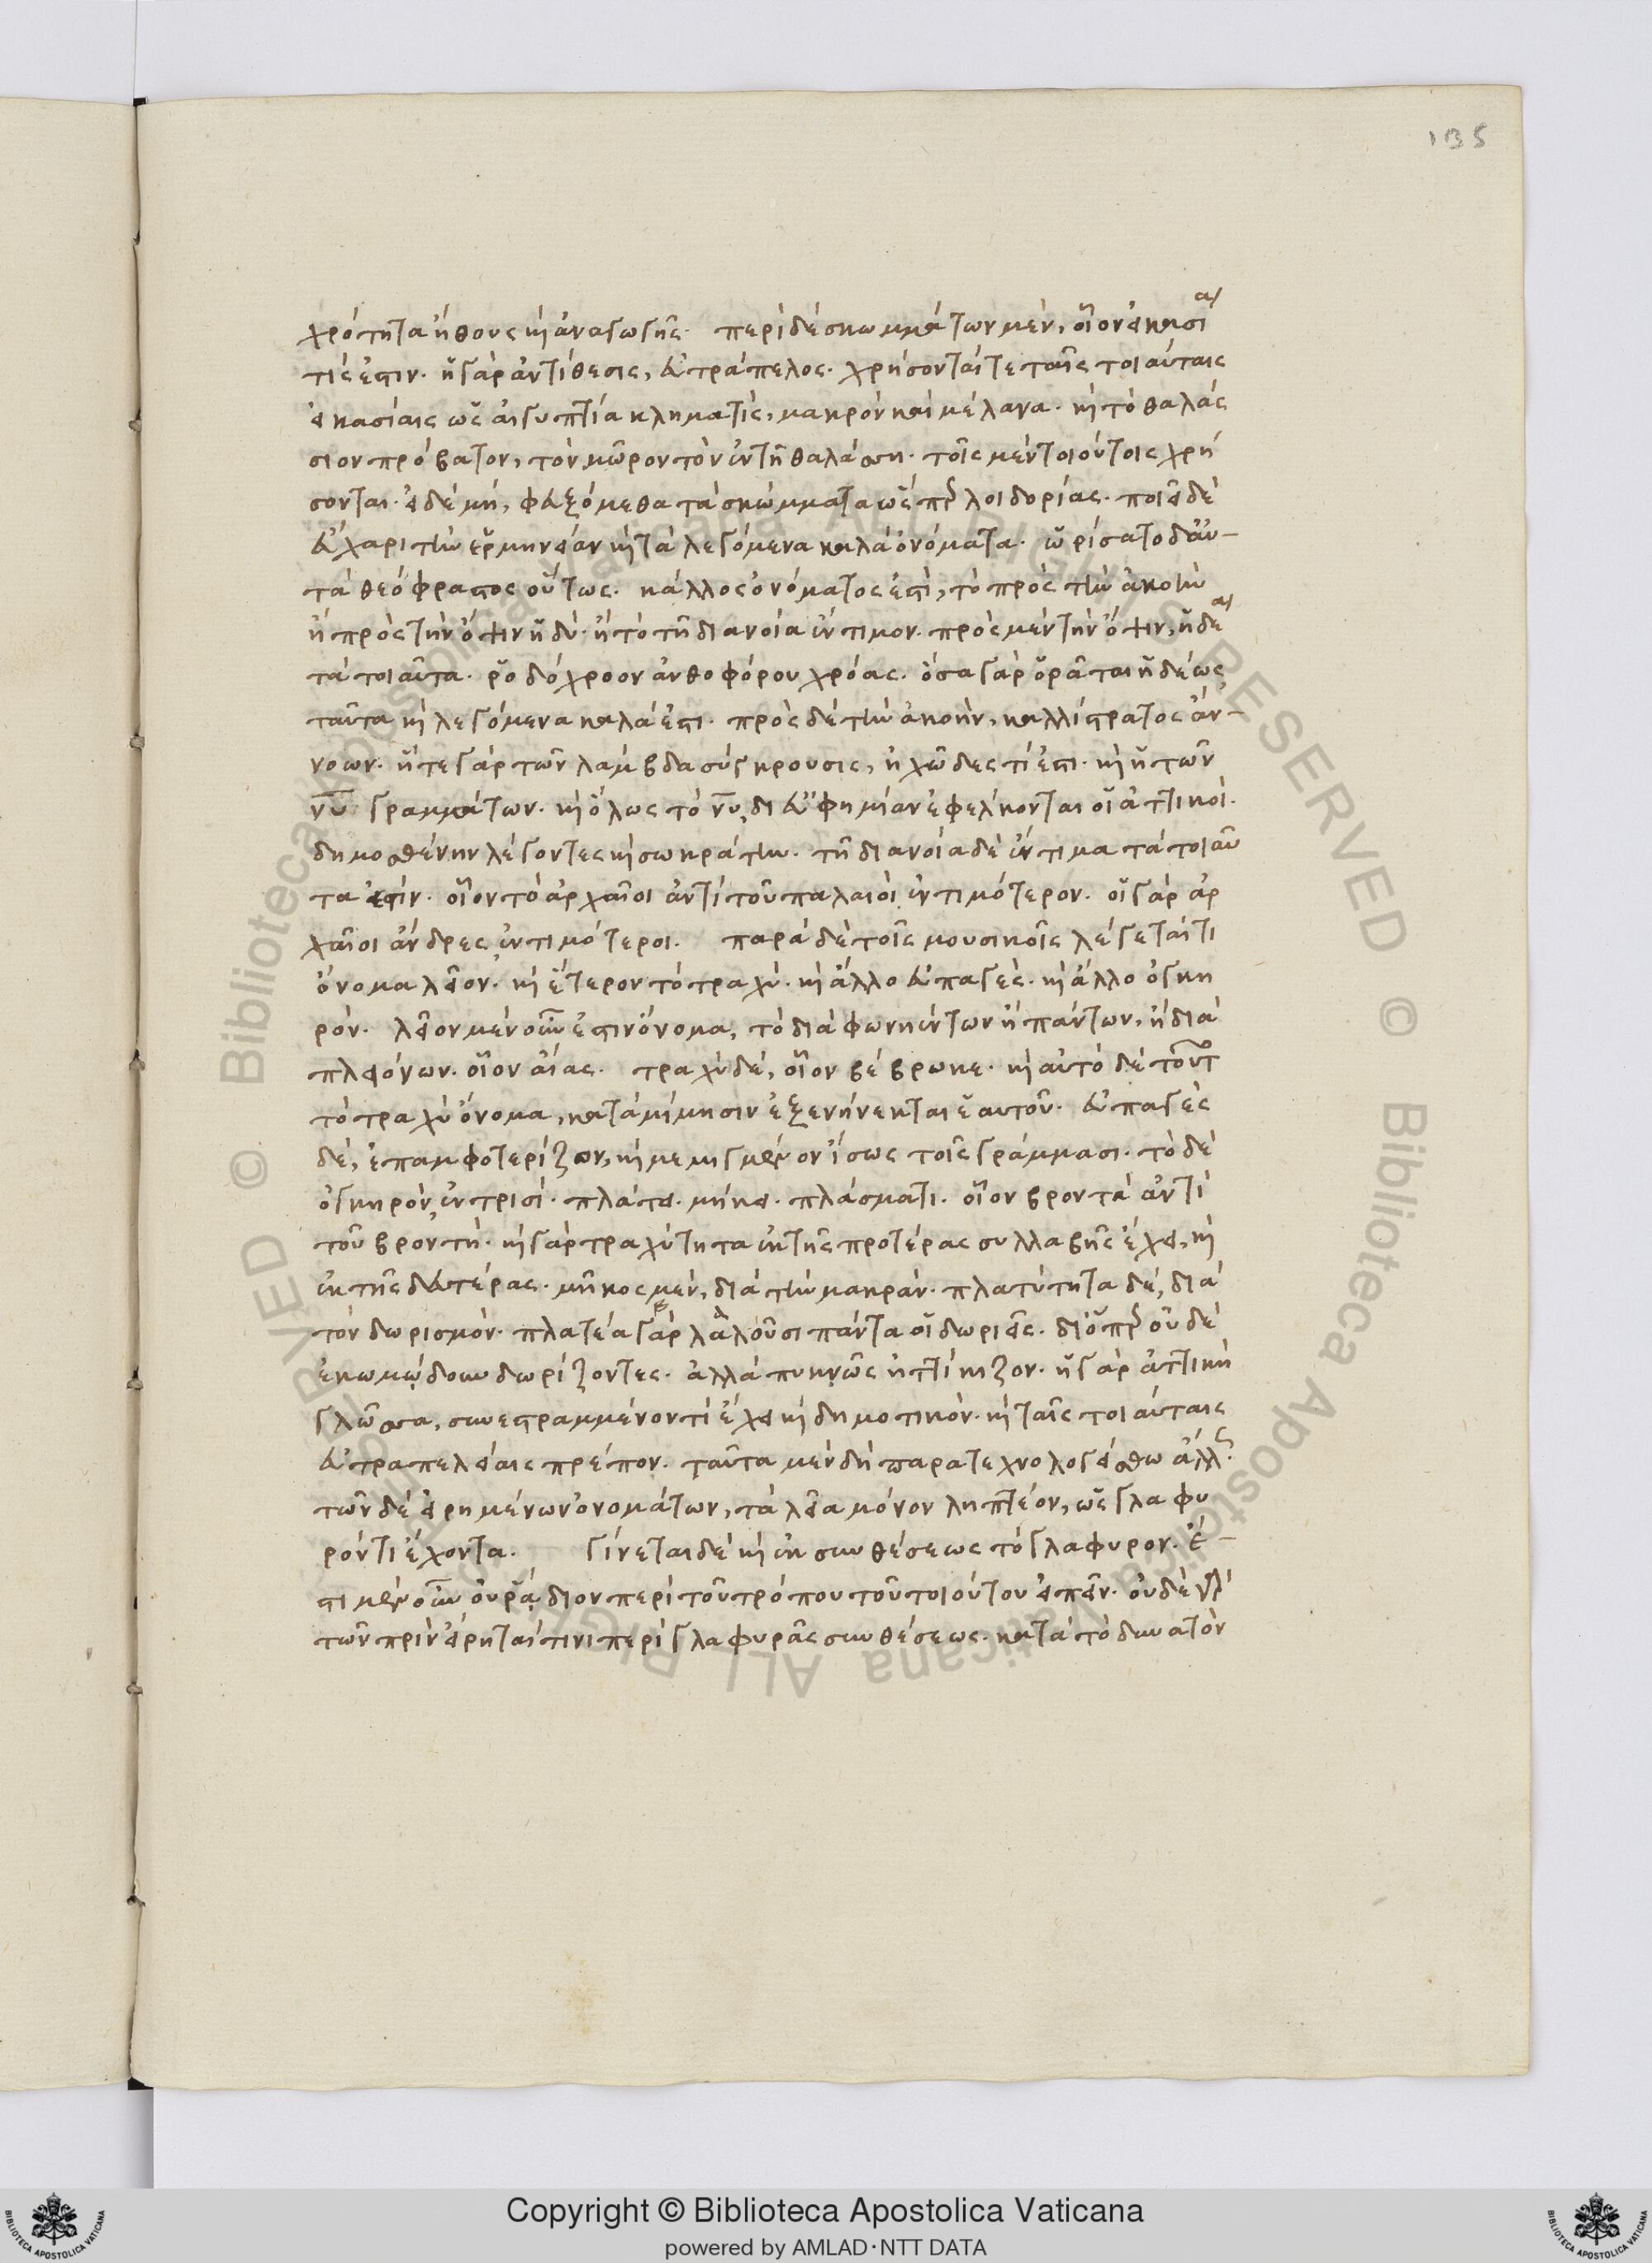 135
χρότητα ἤθους καὶ ἀναγωγῆς. περὶ δὲ σκωμμάτων μὲν, οἷον εἰκασία
τίς ἐστιν. ἡ γὰρ ἀντίθεσις, εὐτράπελος. χρήσονταί τε ταῖς τοιαύταις
εἰκασίαις ὡς αἰγυπτία κληματὶς, μακρὸν καὶ μέλανα. καὶ τὸ θαλάσ
σιον πρόβατον, τὸν μῶρον τὸν ἐν τῇ θαλάσση. τοῖς μὲν τοιούτοις χρή
σονται. εἰ δὲ μὴ, φευξόμεθα τὰ σκώμματα ὥσπερ λοιδορίας. ποιεῖ δὲ
εὔχαριν τὴν ἑρμηνείαν καὶ τὰ λεγόμενα καλὰ ὀνόματα. ὡρίσατο δ' αὐ-
τὰ θεόφραστος οὕτως. κάλλος ὀνόματος ἐστὶ, τὸ πρὸς τὴν ἀκοὴν
ἢ πρὸς τὴν ὄψιν ἡδὺ. ἢ τὸ τῇ διανοία ἔντιμον. πρὸς μὲν τὴν ὄψιν, ἡδέα
τὰ τοιαῦτα. ῥοδόχροον ἀνθοφόρου χρόας. ὅσα γὰρ ὁρᾶται ἡδέως
ταῦτα καὶ λεγόμενα καλά ἐστι. πρὸς δὲ τὴν ἀκοὴν, καλλίστρατος ἀν-
νοων. ἥ τε γὰρ τῶν λάμβδα σύγκρουσις, ἠχῶδες τί ἐστι. καὶ ἡ τῶν
νῦ γραμμάτων. καὶ ὅλως τὸ νῦ, δι εὐφημίαν ἐφελκονται οἱ ἀττικοί.
δημοσθένην λέγοντες καὶ σωκράτην. τῇ διανοία δὲ ἔντιμα τὰ τοιαῦ
τα ἐστίν. οἷον τὸ ἀρχαῖοι ἀντὶ τοῦ παλαιοὶ ἐντιμότερον. οἱ γὰρ ἀρ
χαῖοι ἄνδρες, ἐντιμότεροι. παρὰ δὲ τοῖς μουσικοῖς λέγεταί τι
ὄνομα λεῖον. καὶ ἕτερον τὸ τραχύ. καὶ ἄλλο εὐπαγὲς. καὶ ἄλλο ὀγκη
ρόν. λεῖον μὲν οὖν ἐστιν ὄνομα, τὸ διὰ φωνηέντων ἢ πάντων, ἢ διὰ
πλειόνων. οἷον αἴας. τραχὺ δὲ, οἷον βέβρωκε. καὶ αὐτὸ δὲ τοῦτο
τὸ τραχὺ ὄνομα, κατὰ μίμησιν ἐξενήνεκται ἑαυτοῦ. εὐπαγὲς
δὲ, ἐπαμφοτερίζον, καὶ μεμιγμένον ἴσως τοῖς γράμμασι. τὸ δὲ
ὀγκηρὸν, ἐν τρισί. πλάτει. μήκει. πλάσματι. οἷον βροντὰ ἀντὶ
τοῦ βροντή. καὶ γὰρ τραχύτητα ἐκ τῆς προτέρας συλλαβῆς ἔχει, καὶ
ἐκ τῆς δευτέρας. μῆκος μὲν, διὰ τὴν μακρὰν. πλατύτητα δὲ, διὰ
τὸν δωρισμόν. πλατέα γὰρ λαλοῦσι πάντα οἱ δωριεῖς. διόπερ οὐδὲ
ἐκωμῴδουν δωρίζοντες. ἀλλὰ πυκνῶς ἠττίκιζον. ἡ γὰρ ἀττικὴ
γλῶσσα, συνεστραμμένον τί ἔχει καὶ δημοτικὸν. καὶ ταῖς τοιαύταις
εὐτραπελείαις πρέπον. ταῦτα μὲν δὴ παρατεχνολογείσθω ἄλλως.
τῶν δὲ εἰρημένων ὀνομάτων, τὰ λεῖα μόνον ληπτέον, ὡς γλαφυ
ρόν τι ἔχοντα. γίνεται δὲ καὶ ἐκ συνθέσεως τὸ γλαφυρον. ἔ-
στι μὲν οὖν οὐ ῥᾴδιον περὶ τοῦ τρόπου τοῦ τοιούτου εἰπεῖν. οὐδὲ γὰρ
τῶν πρὶν εἴρηταί τινι περὶ γλαφυρᾶς συνθέσεως. κατὰ τὸ δυνατὸν
Copyright © Biblioteca Apostolica Vaticana
powered by AMLAD·NTT DATA